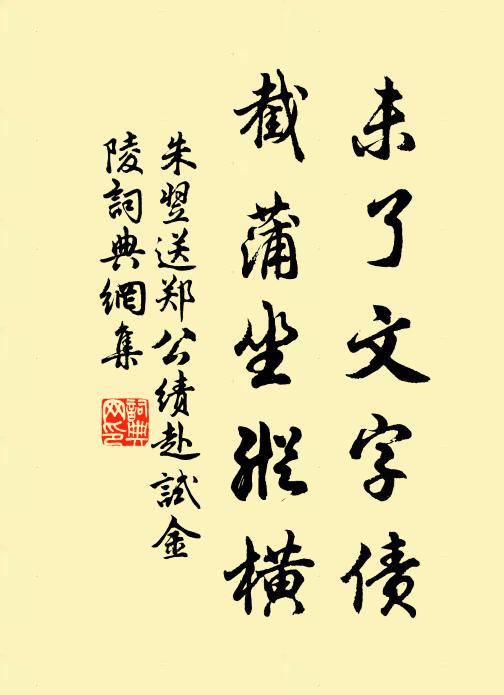 未了文字债
截蒲坐縱橫
朱翌送郑公绩赴試金
陵詞典網集
詞典
网印